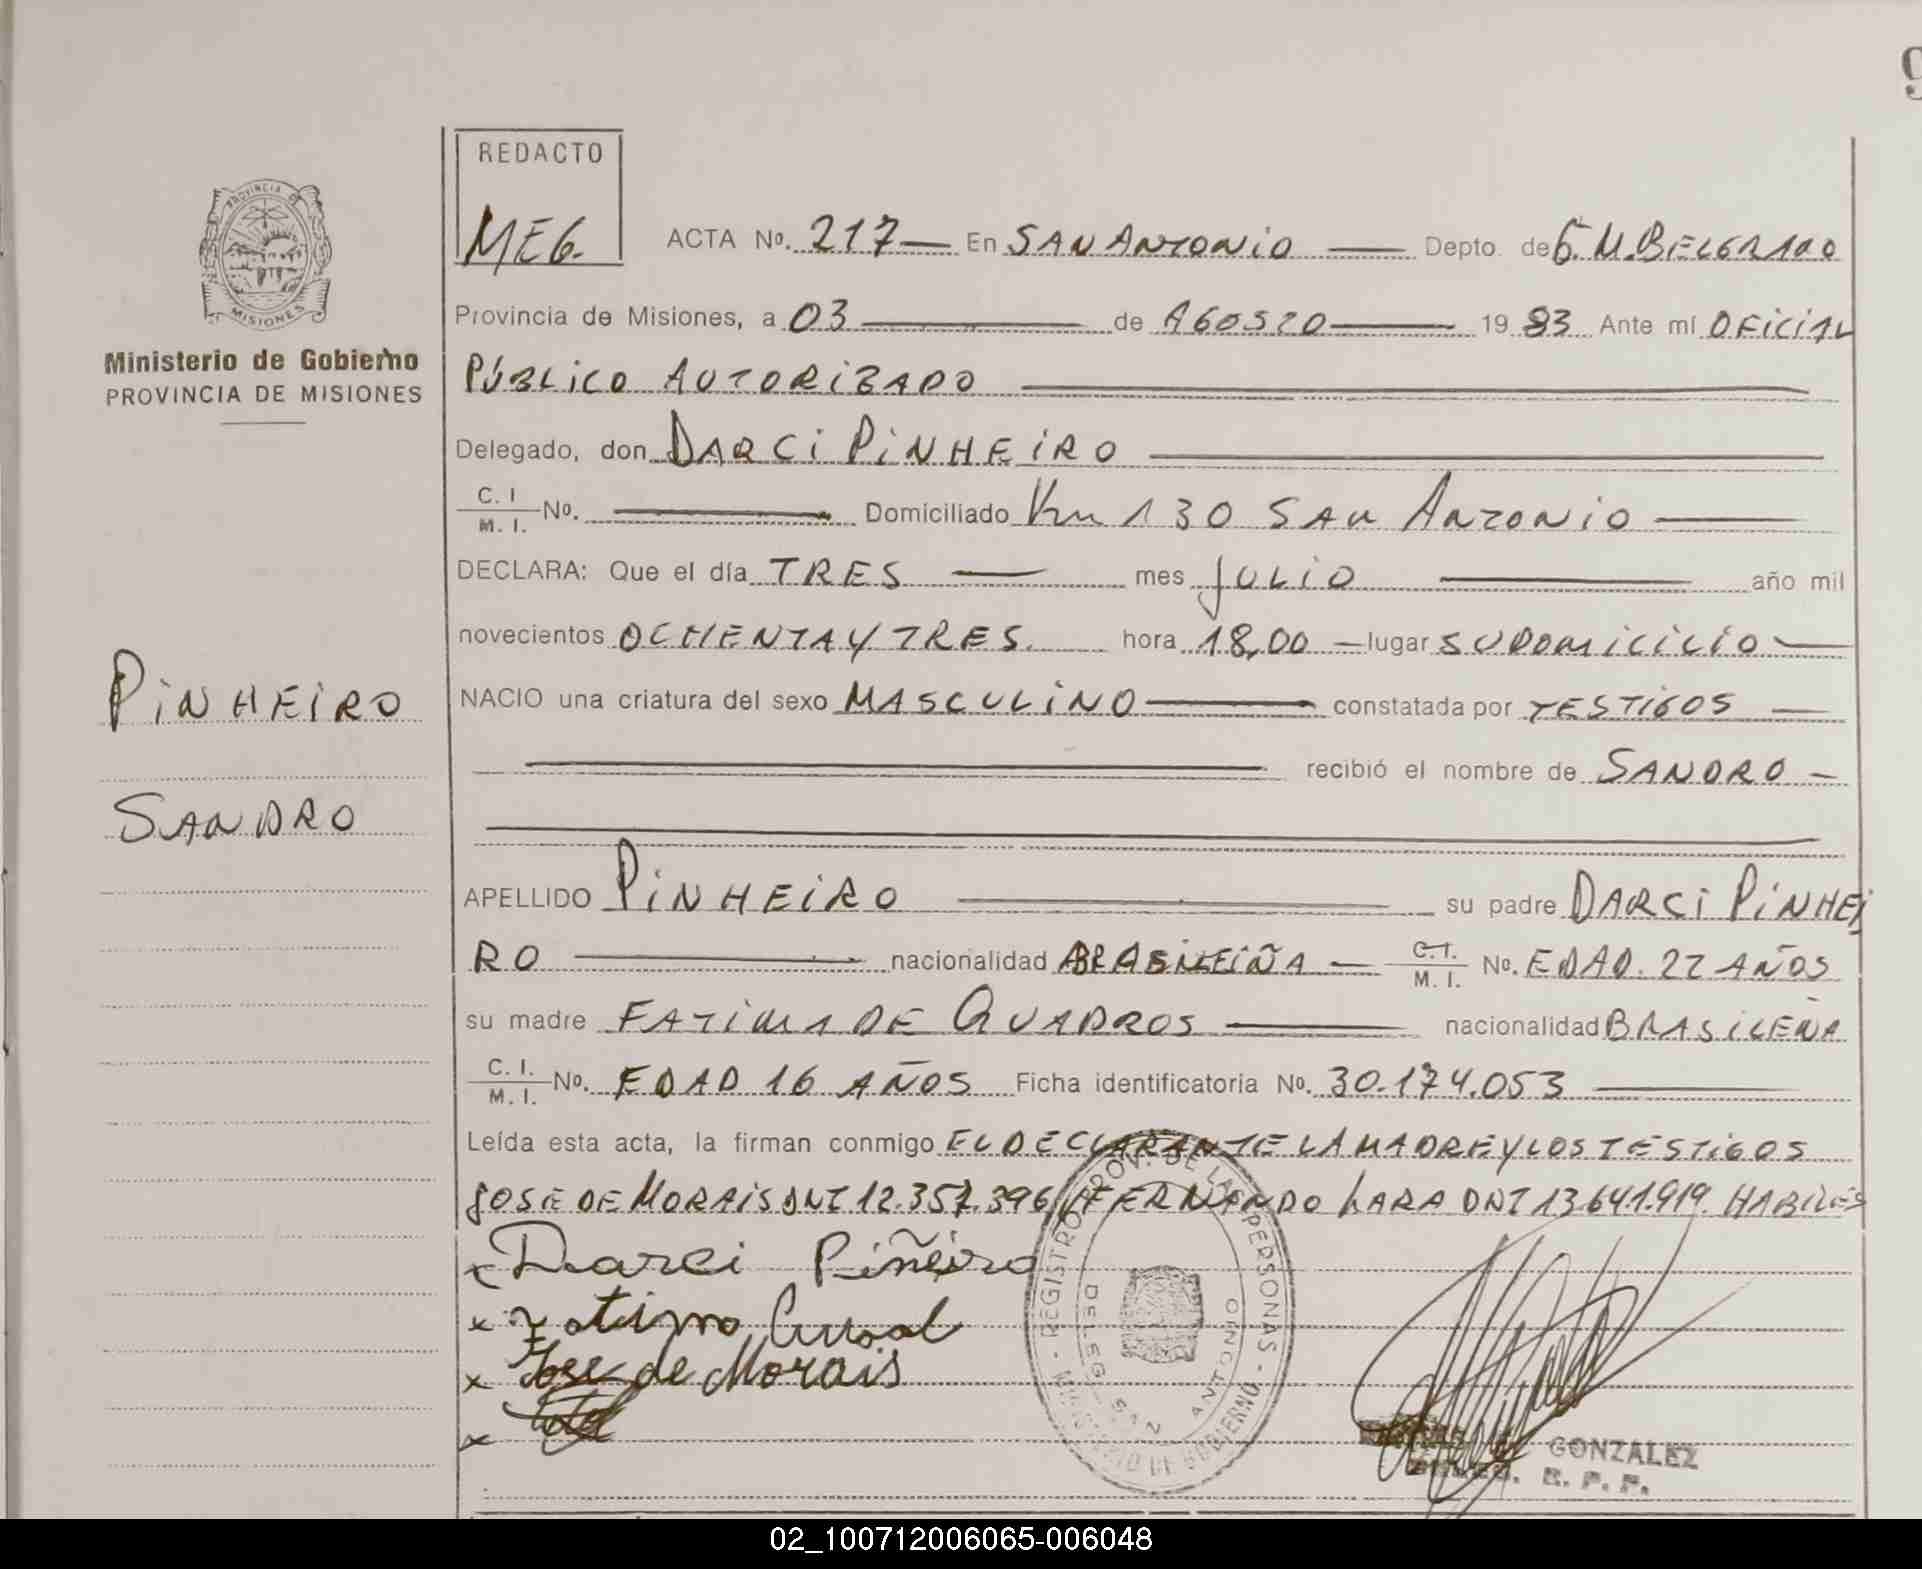 9
REDACTO
MEG.
ACTA No. 217 En SAN ANTONIO Depto. de G. M. BELGRANO
Provincia de Misiones, a 03 de AGOSTO 1983 Ante mí OFICIAL
PÚBLICO AUTORIZADO
Delegado, don DARCI PINHEIRO
C. I. / M. I. No. Domiciliado Km 130 SAN ANTONIO
DECLARA: Que el día TRES mes JULIO año mil
novecientos OCHENTA Y TRES. hora 18,00 lugar SU DOMICILIO
NACIO una criatura del sexo MASCULINO constatada por TESTIGOS
recibió el nombre de SANDRO
APELLIDO PINHEIRO su padre DARCI PINHEI
RO nacionalidad BRASILEÑA C. I. / M. I. No. EDAD. 22 AÑOS
su madre FATIMA DE QUADROS nacionalidad BRASILEÑA
C. I. / M. I. No. EDAD 16 AÑOS Ficha identificatoria No. 30.174.053
Leída esta acta, la firman conmigo EL DECLARANTE LA MADRE Y LOS TESTIGOS
JOSE DE MORAIS DNI 12.357.396 FERNANDO LARA DNI 13.641.919. HABILES
x Darci Piñeiro
x
x Jose de Morais
x
REGISTRO PROV. DE LAS PERSONAS - MINISTERIO DE GOBIERNO -
DELEG. SAN ANTONIO
GONZALEZ
R. P. P.
PROVINCIA DE
MISIONES
Ministerio de Gobierno
PROVINCIA DE MISIONES
PINHEIRO
SANDRO
02_100712006065-006048